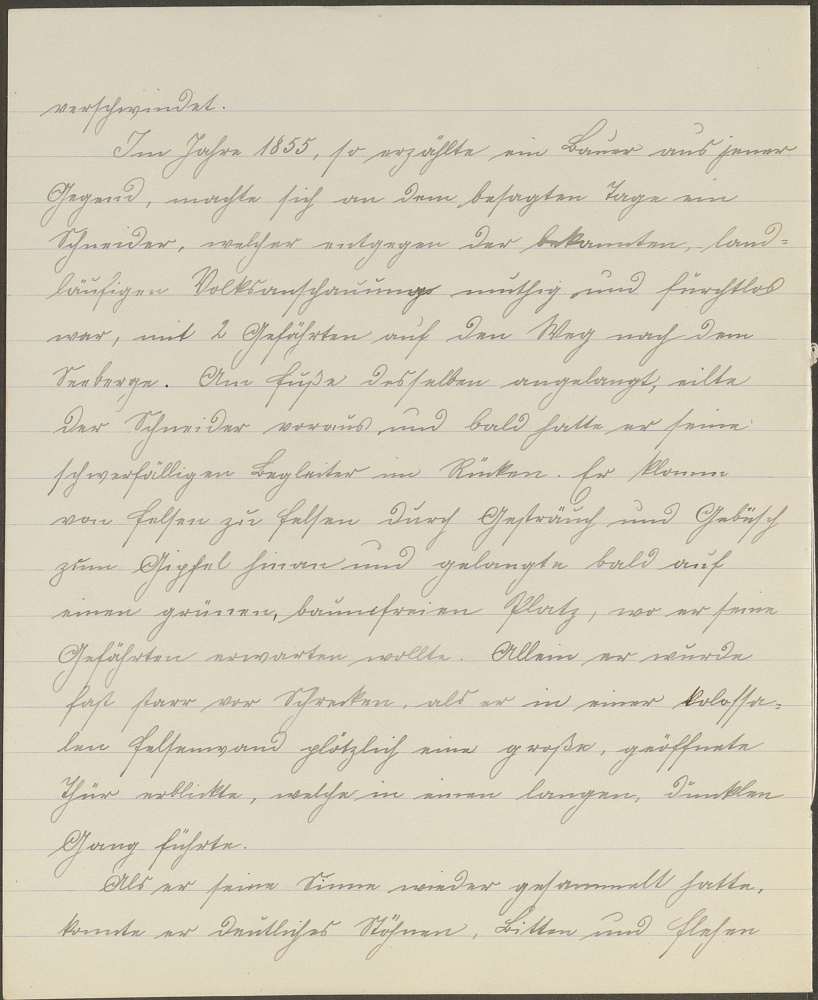 verschwindet.
Im Jahre 1855, so erzählte ein Bauer aus jener
Gegend, machte sich an dem besagten Tage ein
Schneider, welcher entgegen der bekannten, land=
läufigen Volksanschauung muthig und furchtlos
war, mit 2 Gefährten auf den Weg nach dem
Seeberge. Am Fuße desselben angelangt, eilte
der Schneider voraus und bald hatte er seine
schwerfälligen Begleiter im Rücken. Er klomm
von Felsen zu Felsen durch Gesträuch und Gebüsch
zum Gipfel hinan und gelangte bald auf
einen grünen, baumfreien Platz, wo er seine
Gefährten erwarten wollte. Allein er wurde
fast starr vor Schrecken, als er in einer kolossa=
len Felsenwand plötzlich eine große, geöffnete
Thür erblickte, welche in einen langen, dunklen
Gang führte.
Als er seine Sinne wieder gesammelt hatte,
konnte er deutliches Stöhnen, Bitten und Flehen